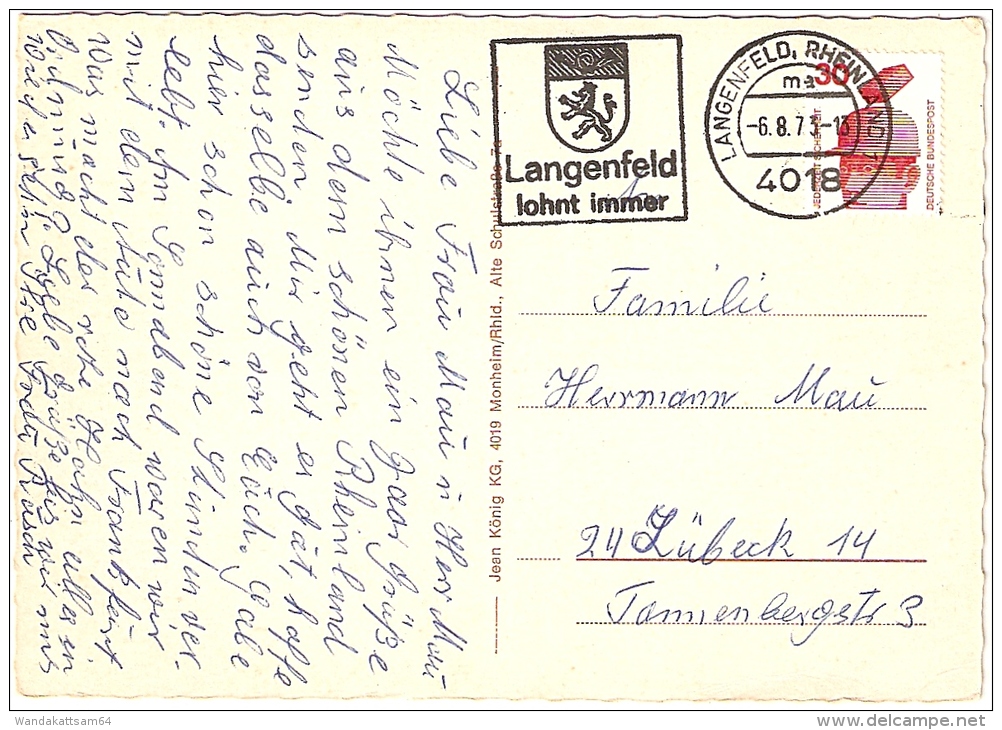 Liebe Frau Mau u Herr Mau
Möchte ihnen ein paar Grüße
aus dem schönen Rheinland
senden. Mir geht es gut, hoffe
dasselbe auch von Euch. Habe
hier schon schöne Stunden ver-
lebt. Am Sonnabend waren wir
mit dem Auto nach Frankfurt
Was macht der rote Hahn alles in
Liebe Grüße bis wir uns
Wieder sehen Ihre
Jean König KG, 4019 Monheim/Rhld., Alte Schulstraße 7a
Langenfeld
lohnt immer
LANGENFELD, RHEINLAND 1
ma
-6.8.73-13
4018
30
JEDERZEIT SICHERHEIT
DEUTSCHE BUNDESPOST
Familie
Herrmann Mau
24 Lübeck 14
Tannenbergstr 3
Wandakattsam64
delcampe.net